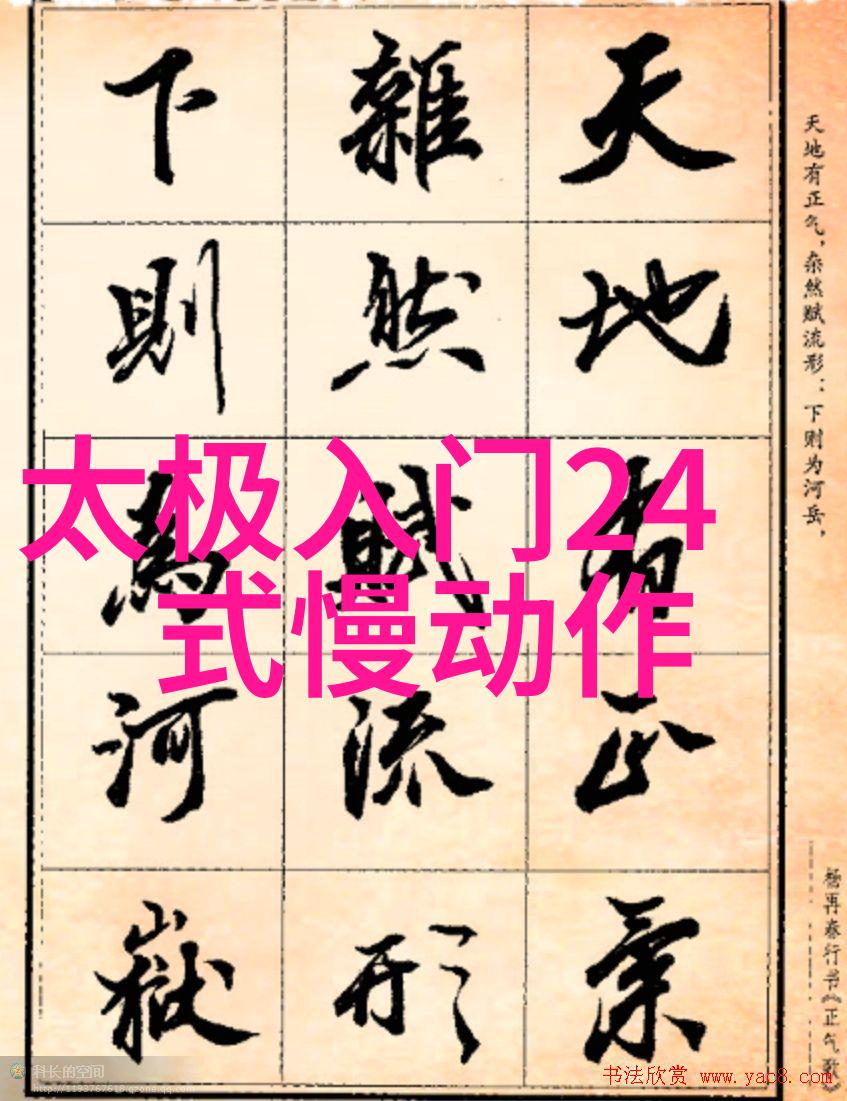 天地有正氣
雜然賦流形
下則為河嶽
天地有正气，杂然赋流形；下则为河岳，
杨再春行书《正气歌》
太极入门24
式慢动作
科长的空间
http://1193767618.qzone.qq.com
书法欣赏 www.yac8.com